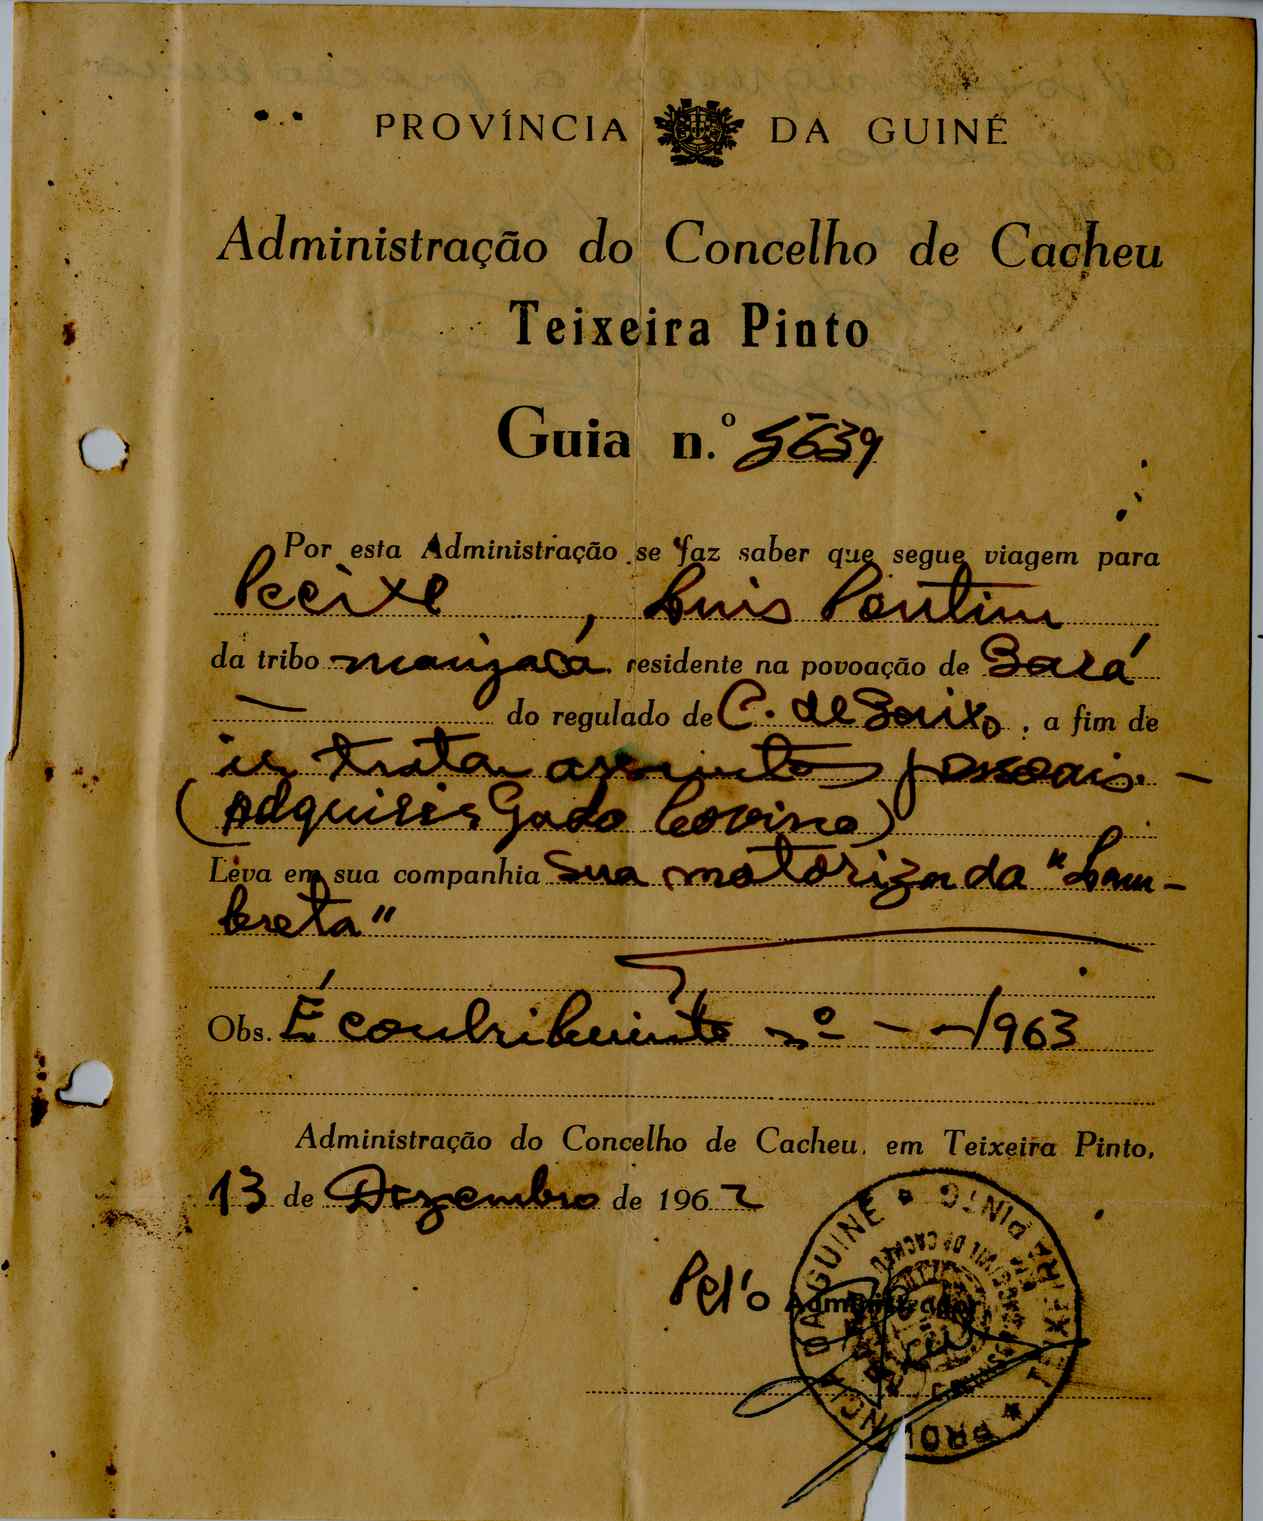 PROVÍNCIA DA GUINÉ
Administração do Concelho de Cacheu
Teixeira Pinto
Guia n.º 5639
Por esta Administração se faz saber que segue viagem para
Pecixe, Luis
da tribo manjaca residente na povoação de Bará
— do regulado de C. de Baixo, a fim de
ir tratar assuntos pessoais. —
(Adquirir Gado bovino)
Leva em sua companhia sua motorizada "Lam-
breta"
Obs. É contribuinte nº - -/1963
Administração do Concelho de Cacheu, em Teixeira Pinto,
13 de Dezembro de 1962
Pel'O Administrador
PROVÍNCIA DA GUINÉ * TEIXEIRA PINTO *